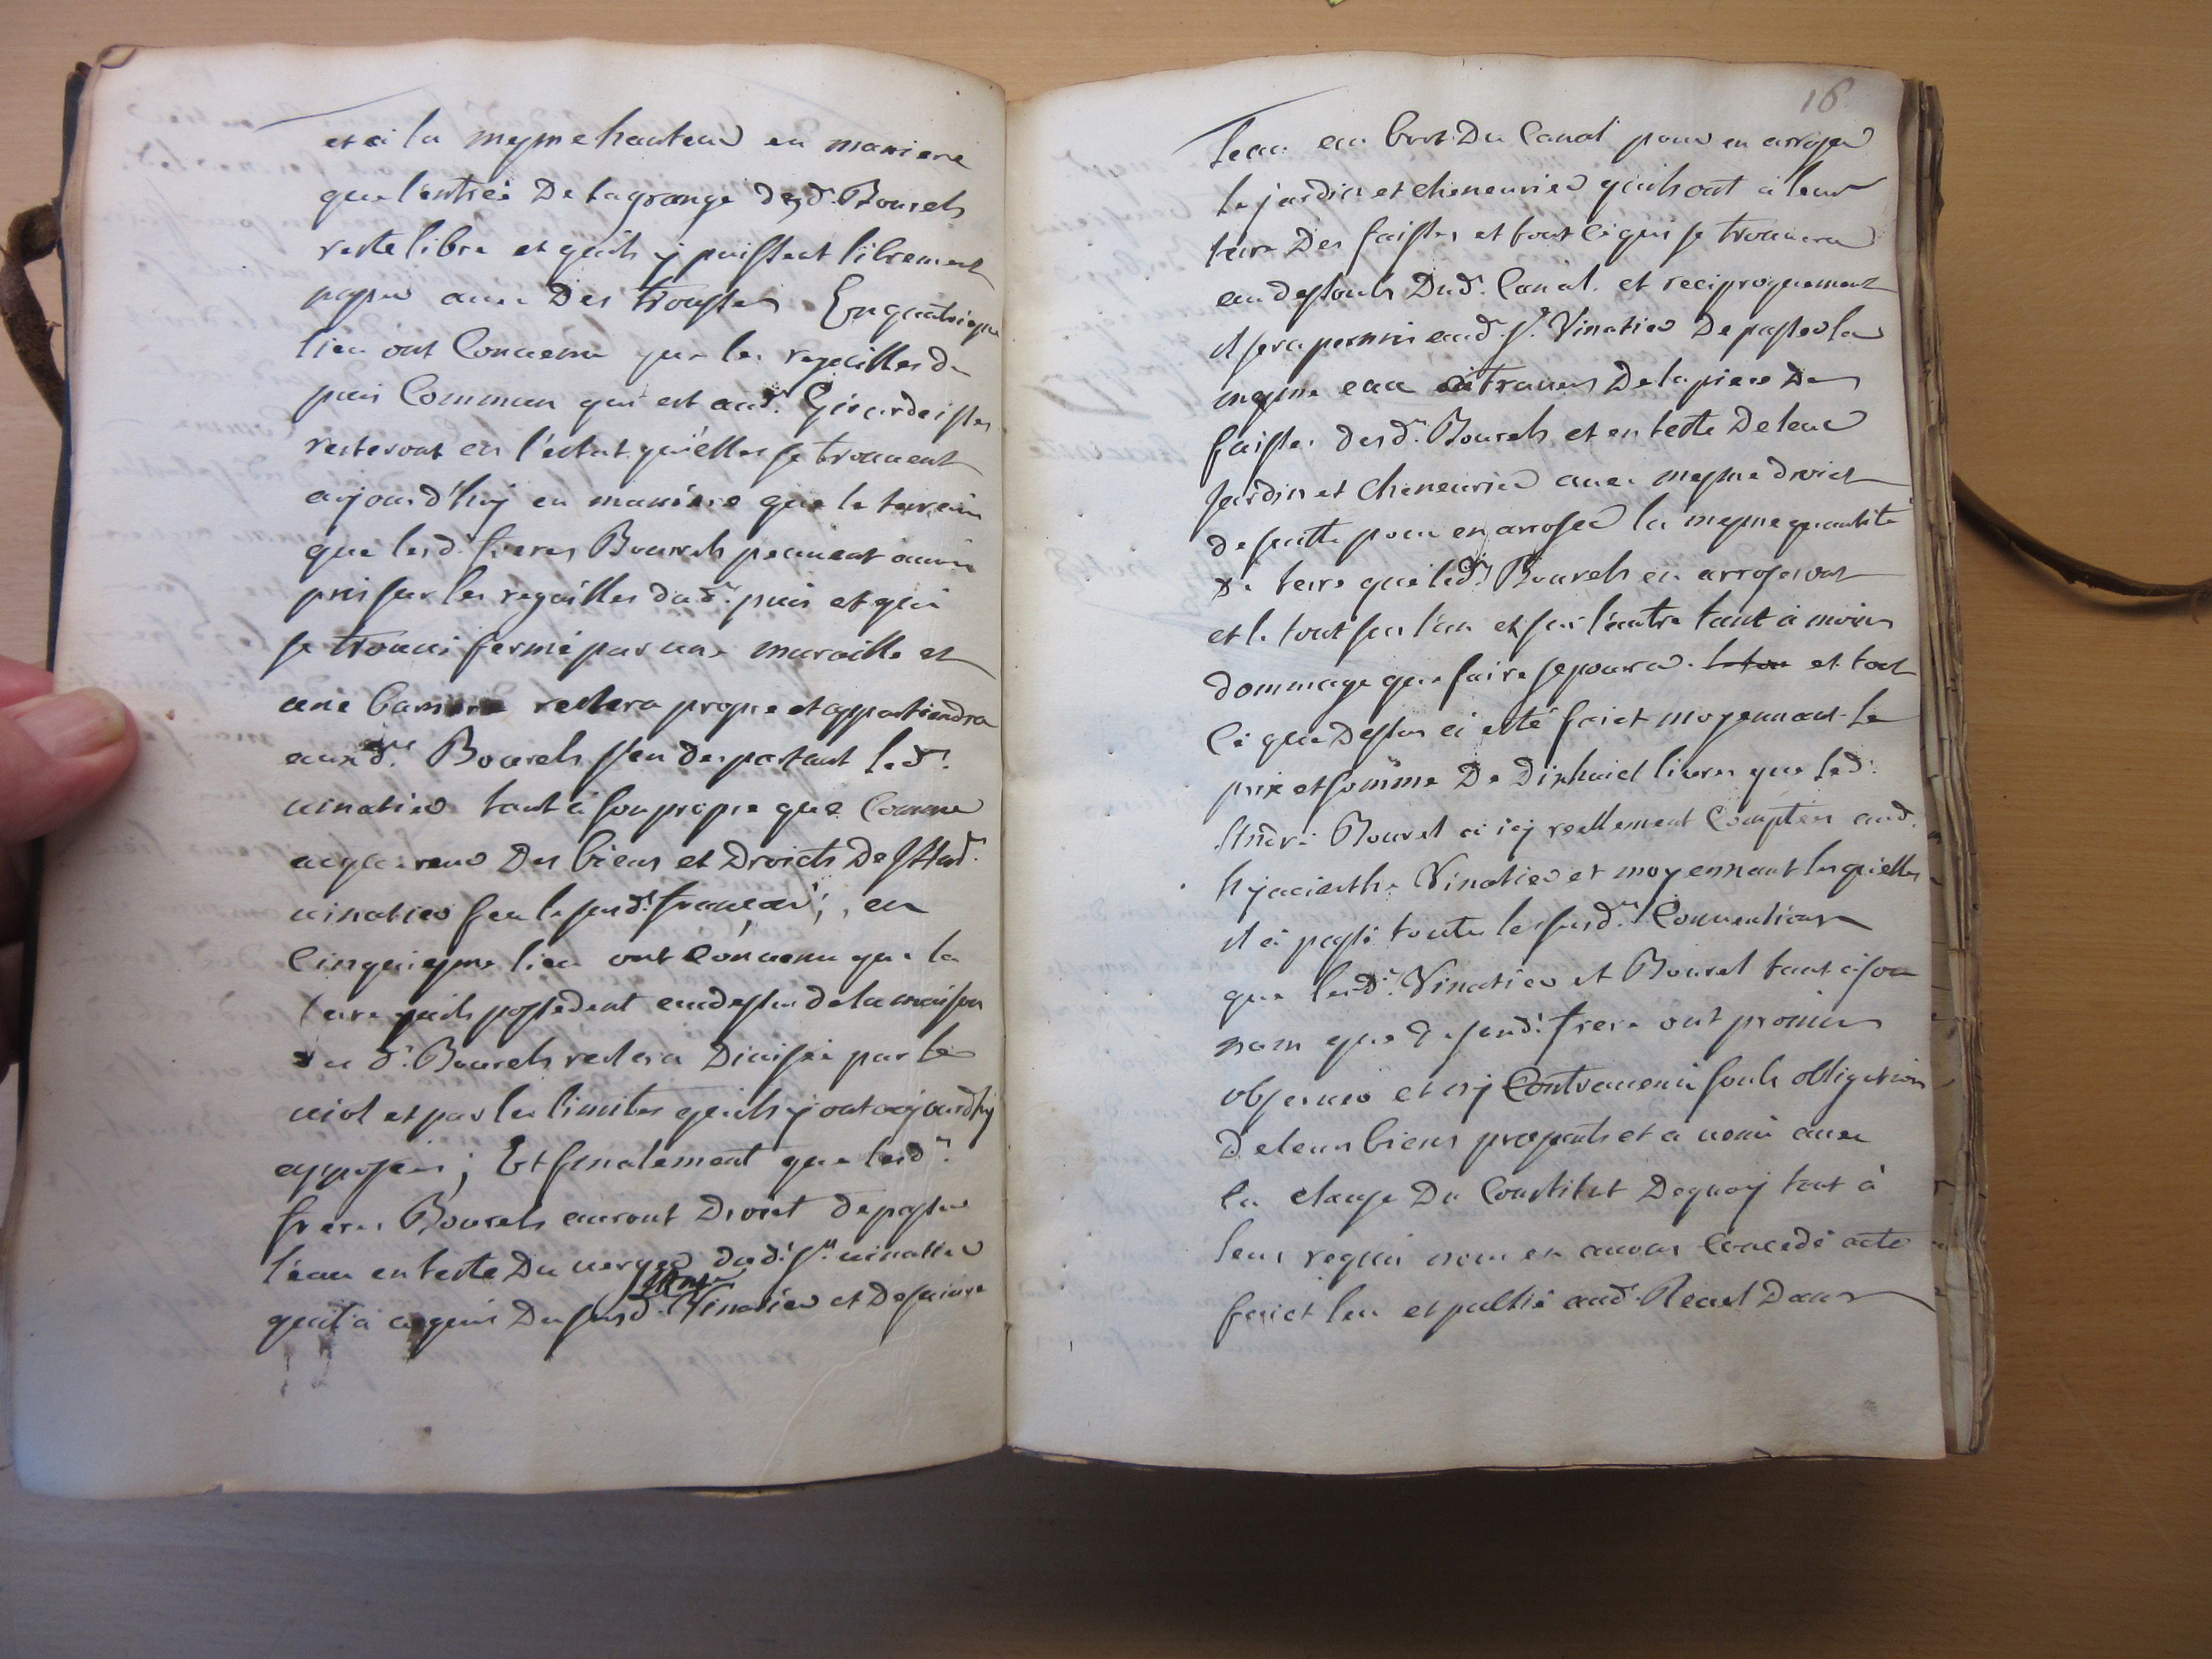 et a la mesme hauteur en maniere
que l'entrée De la grange desd.ts Bourels
reste libre et quils y puissent librement
passer avec Des trousses En quatriesme
lieu ont Convenu que les regailles du
puis Commun qui est aud.t
resteront en l'estat qu'elles se trouvent
aujourd'huy en maniere que le terrain
que lesd. freres Bourels peuvent avoir
pris sur les regailles dud.t puis et qui
se trouve fermé par une muraille et
une barriere restera propre et appartiendra
auxd.ts Bourels s'en despartant led.
vinatier tant à son propre que Comme
acquereur Des biens et Droicts De
vinatier feu le susd. françois; en
Cinquiesme lieu ont Convenu que la
terre quils possedent audessus de la maison
d. Bourels restera Divisée par le
viol et par les limites quils y ont aujourdhuy
apposées; Et finalement que lesd.ts
freres Bourels auront Droict de passer
l'eau en teste Du verger dud. sr. vinatier
quil a acquis Du susd. Vinatier et De suivre
16
leau au bort Du Canal pour en arroser
le jardin et cheneurier quils ont a leur
terre Des faisses et tout ce qui se trouvera
au dessouls Dud. Canal. et reciproquement
il sera permis aud. sr. Vinatier De passer la
mesme eau a travers De la piece Des
faisses desd.ts Bourels et en teste De leur
Jardin et Cheneurier avec mesme droict
de suitte pour en arroser la mesme quantité
de terre que led.ts Bourels en arroseront
et le tout sur l'un et sur l'autre tant a moins
dommage que faire se poura. le tou et tout
Ce que Dessus a esté faict moyennant le
prix et somme De Dixhuict livres que led.
André Bourel a icy reellement Comptées aud.
hyacinthe Vinatier et moyennant lesquelles
il a passé toutes les susd.tes Conventions
que lesd.ts Vinatier et Bourel tant a son
nom que de sond. frere ont promis
observer et ny Contrevenir souls obligation
De leurs biens presents et a venir avec
la clause Du Constitut Dequoy tout à
leur requis nous en avons Concedé acte
faict leu et publié aud. Revel Dans